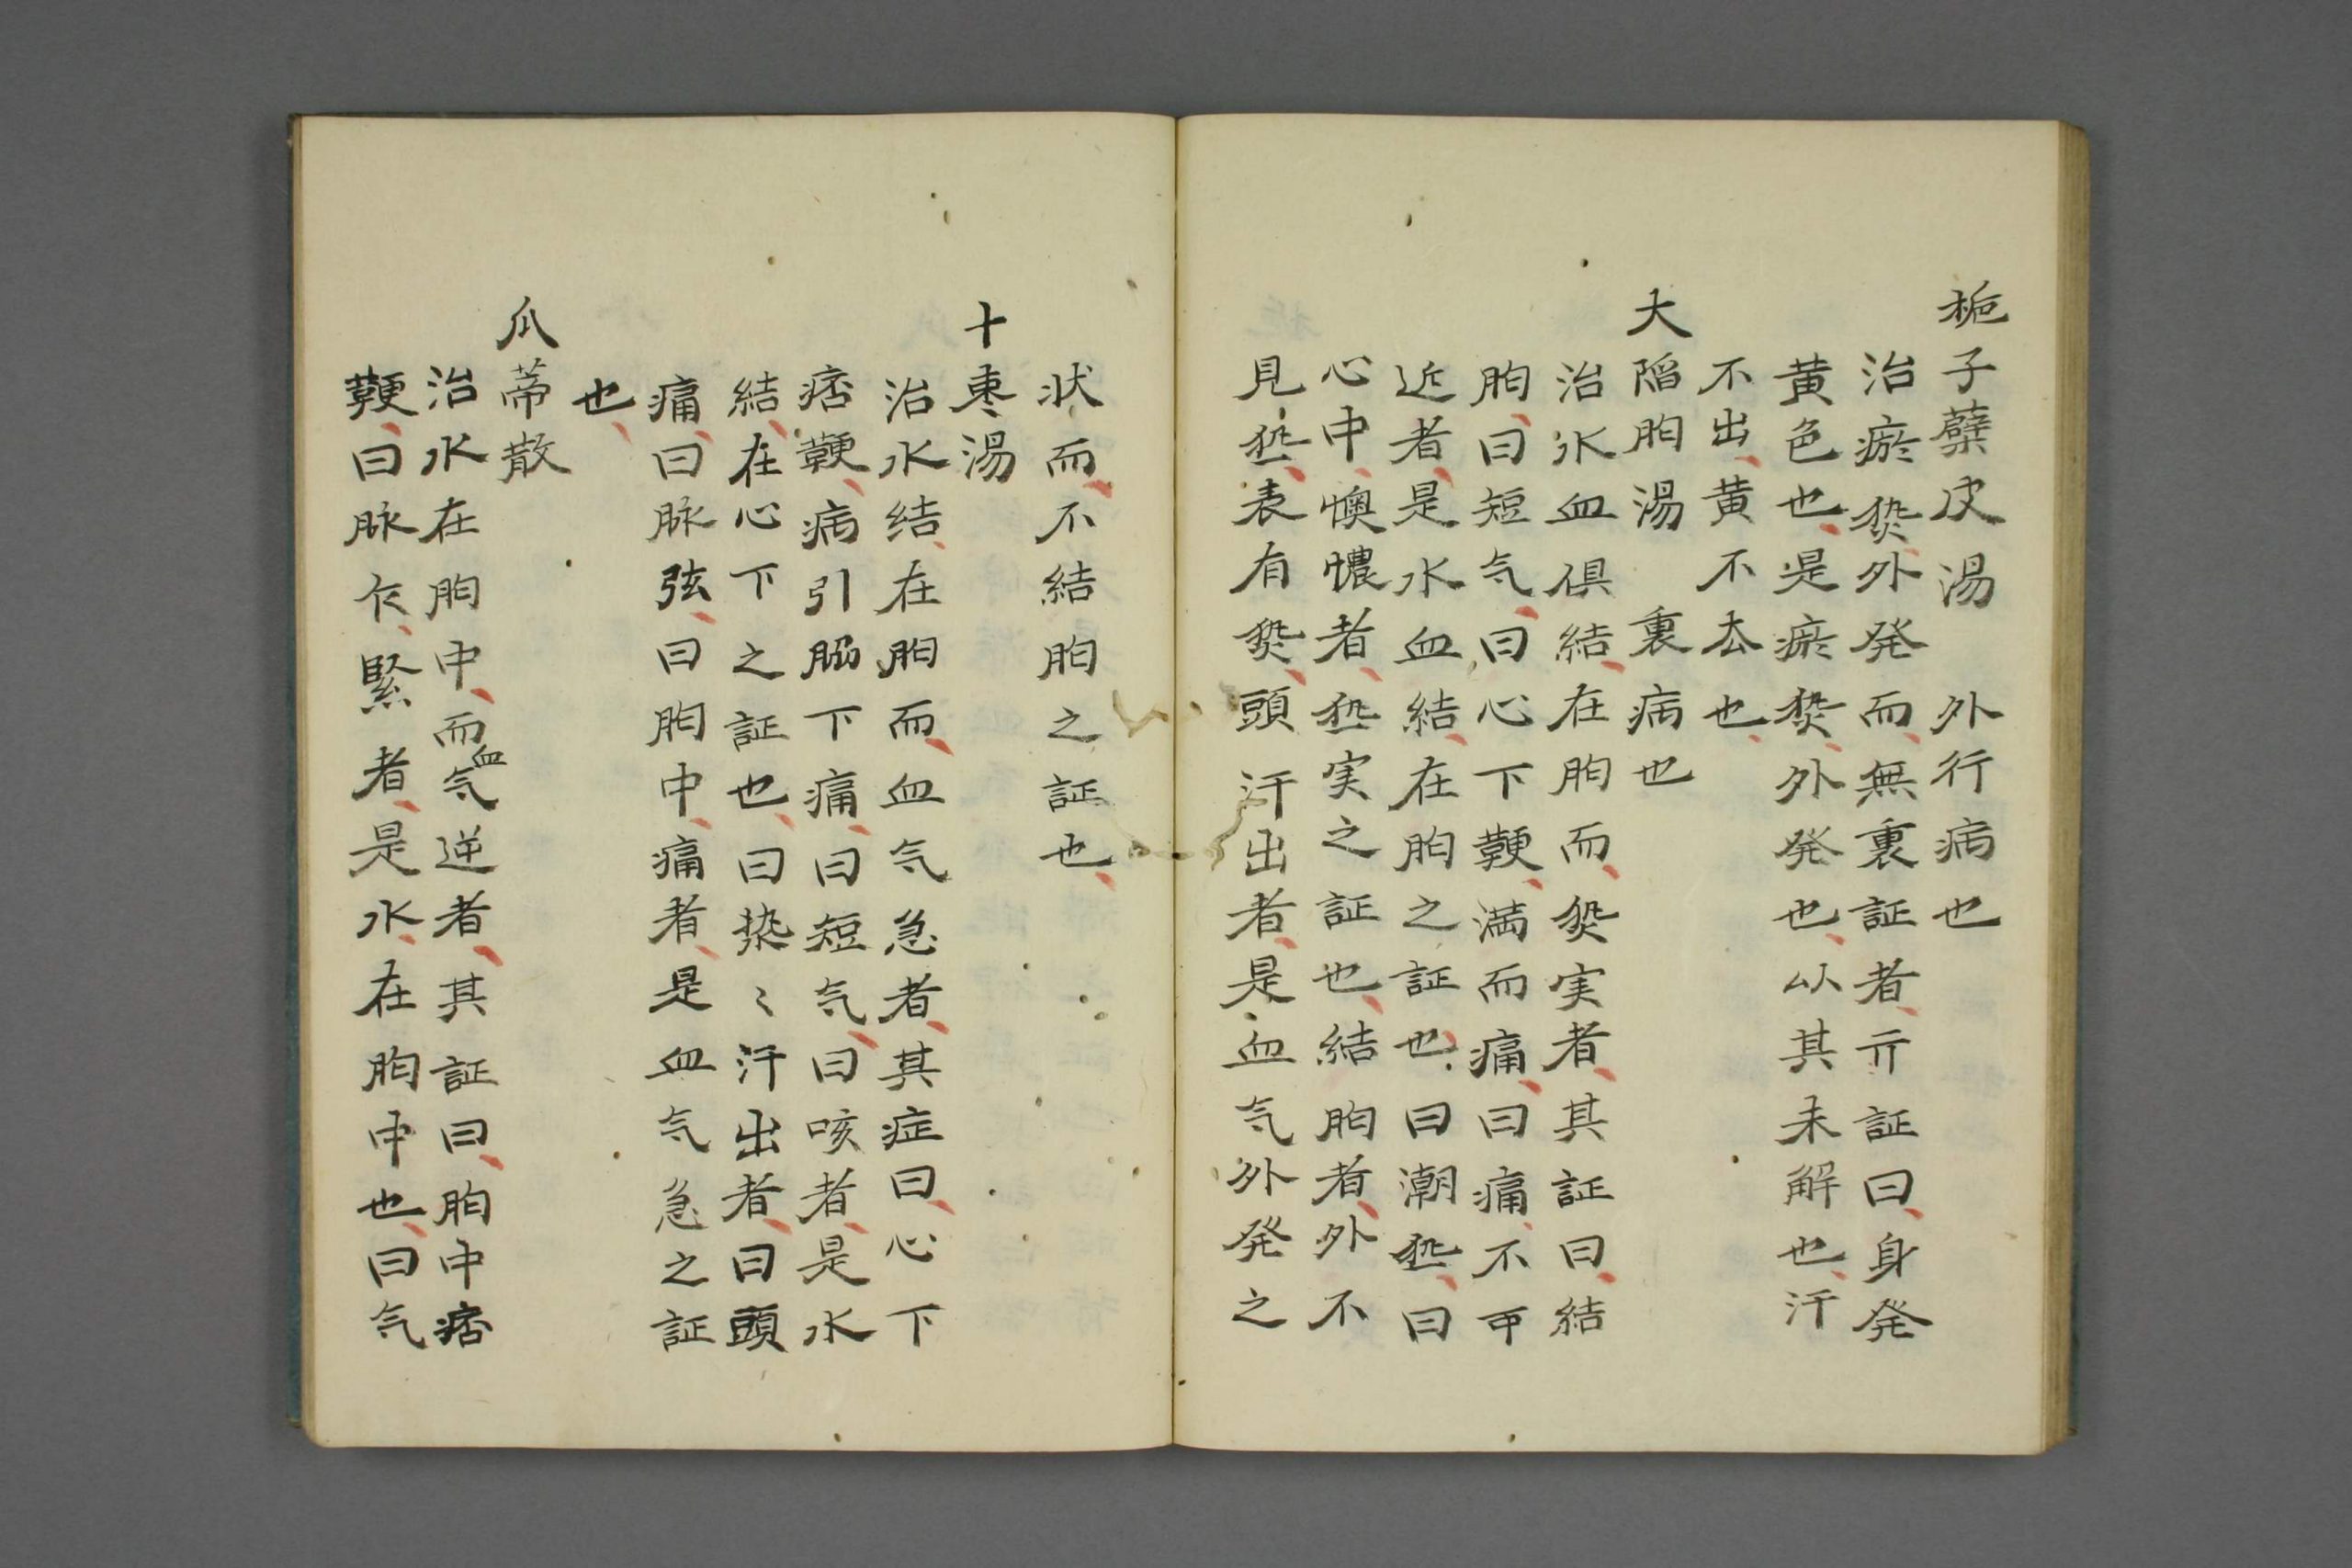 梔子蘗皮湯　外行病也
治瘀熱外発而無裏証者亓証曰身発
黄色也是瘀熱外発也以其未解也汗
不出黄不去也
大陥胸湯　裏病也
治水血俱結在胸而熱実者其証曰結
胸曰短气曰心下鞕満而痛曰痛不可
近者是水血結在胸之証也曰潮熱曰
心中懊憹者熱実之証也結胸者外不
見熱表有熱頭汗出者是血气外発之
状而不結胸之証也
十棗湯
治水结在胸而血气急者其症曰心下
痞鞕病引脇下痛曰短气曰咳者是水
結在心下之証也曰漐〻汗出者曰頭
痛曰脉弦曰胸中痛者是血气急之証
也
瓜蒂散
治水在胸中而血气逆者其証曰胸中痞
鞕曰脉乍緊者是水在胸中也曰气